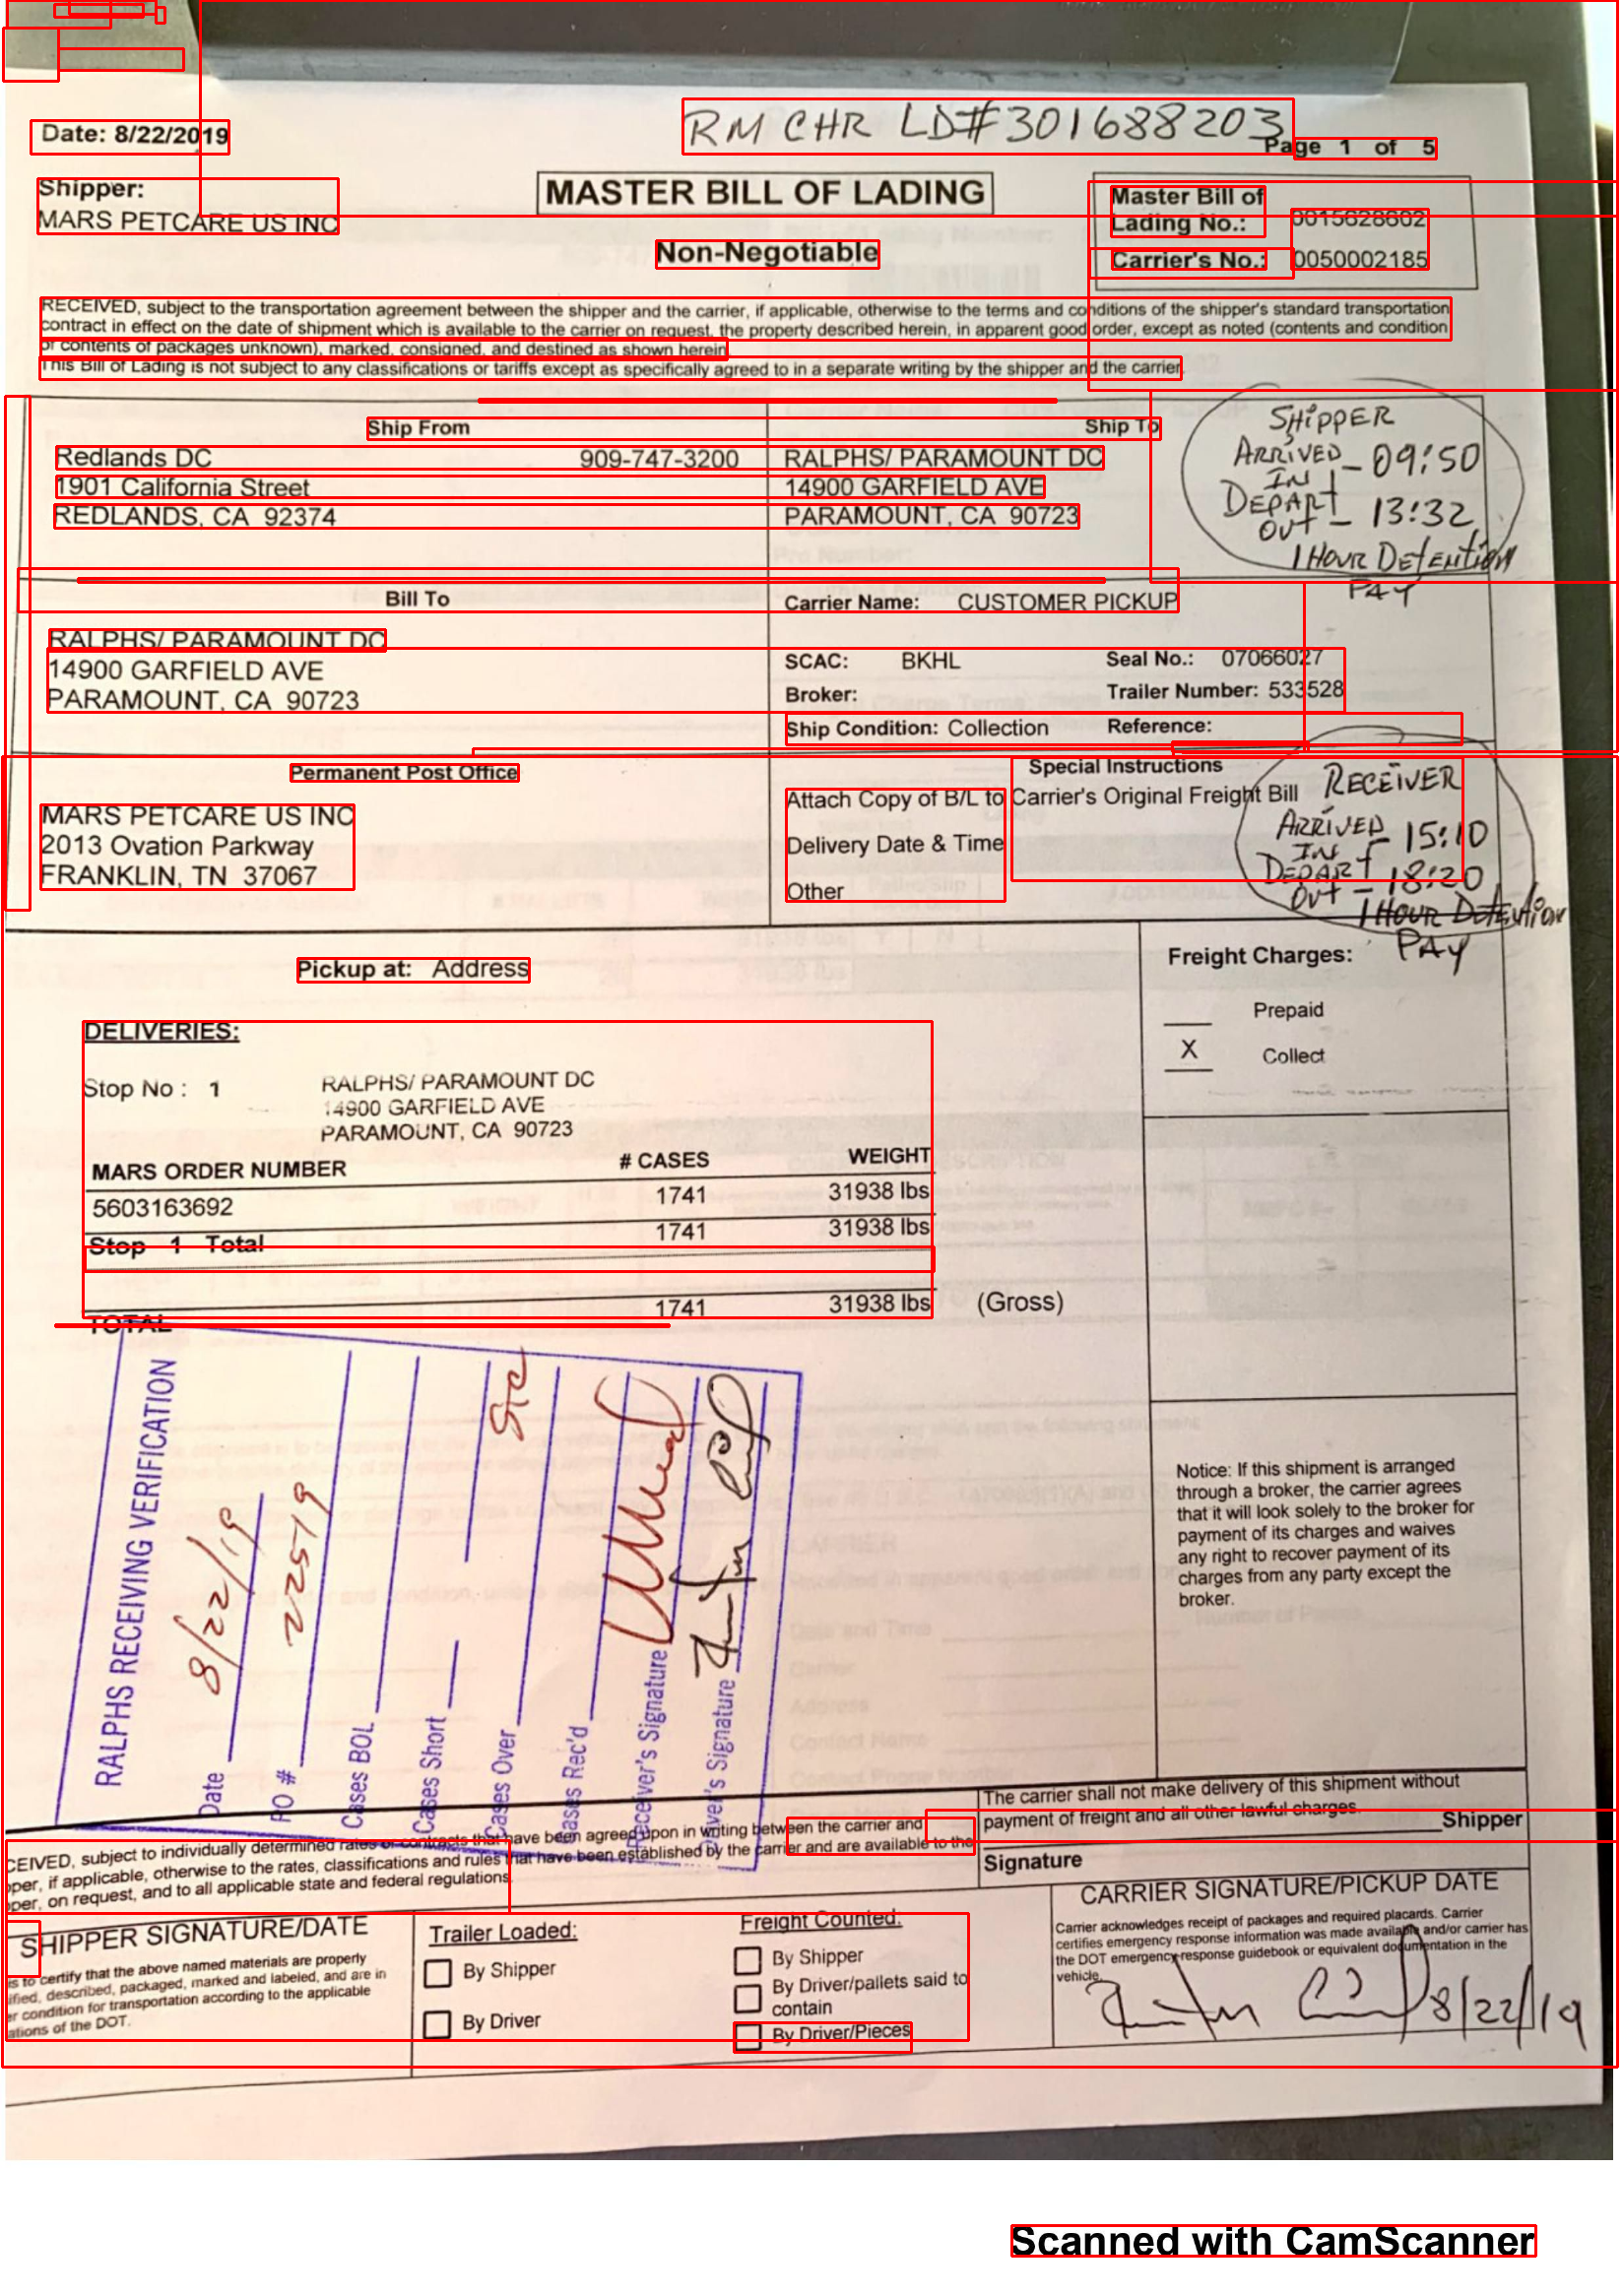 RM CHR LD#301688203
Date: 8/22/2019
Page 1 of 5
Shipper:
MARS PETCARE US INC
MASTER BILL OF LADING
Non-Negotiable
Master Bill of
Lading No.: 0015628602
Carrier's No.: 0050002185
RECEIVED, subject to the transportation agreement between the shipper and the carrier, if applicable, otherwise to the terms and conditions of the shipper's standard transportation
contract in effect on the date of shipment which is available to the carrier on request, the property described herein, in apparent good order, except as noted (contents and condition
of contents of packages unknown), marked, consigned, and destined as shown herein
This Bill of Lading is not subject to any classifications or tariffs except as specifically agreed to in a separate writing by the shipper and the carrier
Ship From
Redlands DC 909-747-3200
1901 California Street
REDLANDS, CA 92374
Ship To
RALPHS/ PARAMOUNT DC
14900 GARFIELD AVE
PARAMOUNT, CA 90723
SHIPPER
ARRIVED
IN - 09:50
DEPART
OUT - 13:32
1 HOUR DETENTION
PAY
Bill To
RALPHS/ PARAMOUNT DC
14900 GARFIELD AVE
PARAMOUNT, CA 90723
Carrier Name: CUSTOMER PICKUP
SCAC: BKHL Seal No.: 07066027
Broker: Trailer Number: 533528
Ship Condition: Collection Reference:
Permanent Post Office
MARS PETCARE US INC
2013 Ovation Parkway
FRANKLIN, TN 37067
Special Instructions
Attach Copy of B/L to Carrier's Original Freight Bill
Delivery Date & Time
Other
RECEIVER
ARRIVED
IN - 15:10
DEPART
OUT - 18:20
1 HOUR DETENTION
PAY
Pickup at: Address
Freight Charges:
Prepaid
X Collect
DELIVERIES:
Stop No : 1 RALPHS/ PARAMOUNT DC
14900 GARFIELD AVE
PARAMOUNT, CA 90723
MARS ORDER NUMBER # CASES WEIGHT
5603163692 1741 31938 lbs
Stop 1 Total 1741 31938 lbs
TOTAL 1741 31938 lbs (Gross)
RALPHS RECEIVING VERIFICATION
Date 8/22/19
PO # 22519
Cases BOL
Cases Short
Cases Over
Cases Rec'd
Receiver's Signature
Driver's Signature
Notice: If this shipment is arranged
through a broker, the carrier agrees
that it will look solely to the broker for
payment of its charges and waives
any right to recover payment of its
charges from any party except the
broker.
CEIVED, subject to individually determined rates or contracts that have been agreed upon in writing between the carrier and
per, if applicable, otherwise to the rates, classifications and rules that have been established by the carrier and are available to the
per, on request, and to all applicable state and federal regulations.
The carrier shall not make delivery of this shipment without
payment of freight and all other lawful charges.
Shipper
Signature
SHIPPER SIGNATURE/DATE
is to certify that the above named materials are properly
ified, described, packaged, marked and labeled, and are in
er condition for transportation according to the applicable
ations of the DOT.
Trailer Loaded:
By Shipper
By Driver
Freight Counted:
By Shipper
By Driver/pallets said to
contain
By Driver/Pieces
CARRIER SIGNATURE/PICKUP DATE
Carrier acknowledges receipt of packages and required placards. Carrier
certifies emergency response information was made available and/or carrier has
the DOT emergency response guidebook or equivalent documentation in the
vehicle.
8/22/19
Scanned with CamScanner